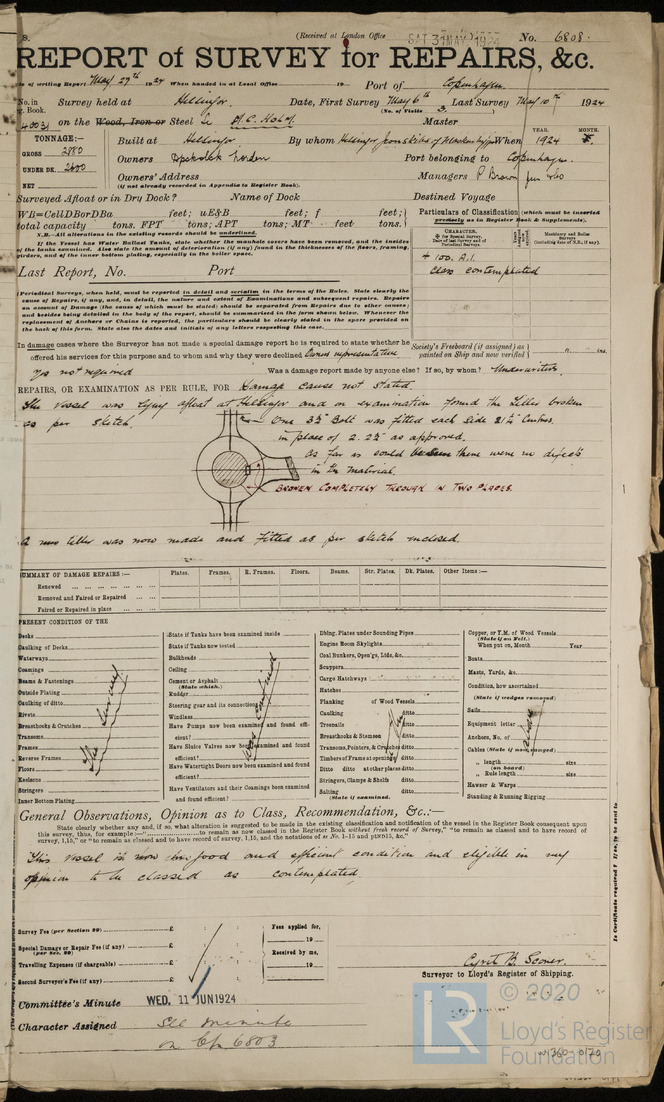 (Received at London Office SAT. 31 MAY 1924
No. 6808.
REPORT of SURVEY for REPAIRS, &c.
of writing Report May 29th 1924 When handed in at Local Office 19 Port of Copenhagen.
No. in Survey held at Helsingor. Date, First Survey May 6th Last Survey May 10th 1924
g. Book. (No. of Visits 3.)
on the Wood, Iron or Steel Master
TONNAGE:— Built at Helsingor By whom When 1924
YEAR. MONTH.
GROSS 2880
UNDER DK. Owners Port belonging to Copenhagen.
NET Owners' Address Managers P Brown
(if not already recorded in Appendix to Register Book).
Surveyed Afloat or in Dry Dock? Name of Dock Destined Voyage
WB=CellDBorDBa feet; uE&B feet; f feet;
total capacity tons. FPT tons; APT tons; MT feet tons.
N.B.—All alterations in the existing records should be underlined.
If the Vessel has Water Ballast Tanks, state whether the manhole covers have been removed, and the insides
of the tanks examined. Also state the amount of deterioration (if any) found in the thicknesses of the floors, framing,
girders, and of the inner bottom plating, especially in the boiler space.
Particulars of Classification (which must be inserted
precisely as in Register Book & Supplements).
CHARACTER.
✠ for Special Survey.
Date of last Survey and of
Periodical Surveys.
Machinery and Boiler
Surveys
(including date of N.B., if any).
+ 100. A.1.
class contemplated
Last Report, No. Port
(Periodical Surveys, when held, must be reported in detail and seriatim in the terms of the Rules. State clearly the
cause of Repairs, if any, and, in detail, the nature and extent of Examinations and subsequent repairs. Repairs
on account of Damage (the cause of which must be stated) should be separated from Repairs due to other causes;
and besides being detailed in the body of the report, should be summarised in the form shewn below. Whenever the
replacement of Anchors or Chains is reported, the particulars should be clearly stated in the space provided on
the back of this form. State also the dates and initials of any letters respecting this case.
In damage cases where the Surveyor has not made a special damage report he is required to state whether he
offered his services for this purpose and to whom and why they were declined Owners representative
Society's Freeboard (if assigned) as
painted on Ship and now verified
ft. ins.
not required Was a damage report made by anyone else? If so, by whom? Underwriters.
REPAIRS, OR EXAMINATION AS PER RULE, FOR Damage cause not stated.
This vessel was lying afloat at Helsingor and on examination found the tiller broken
as per sketch.
One 3½" Bolt was fitted each side 21½" Centres.
in place of 2. 2½" as approved.
As far as could be seen there were no defects
in the material.
BROKEN COMPLETELY THROUGH IN TWO PLACES.
A new tiller was now made and fitted as per sketch enclosed.
SUMMARY OF DAMAGE REPAIRS:— Plates. Frames. R. Frames. Floors. Beams. Str. Plates. Dk. Plates. Other Items:—
Renewed
Removed and Faired or Repaired
Faired or Repaired in place
PRESENT CONDITION OF THE
Decks
Caulking of Decks
Waterways
Coamings
Beams & Fastenings
Outside Plating
Caulking of ditto
Rivets
Breasthooks & Crutches
Transoms
Frames
Reverse Frames
Floors
Keelsons
Stringers
Inner Bottom Plating
State if Tanks have been examined inside
State if Tanks now tested
Bulkheads
Ceiling
Cement or Asphalt
(State which.)
Rudder
Steering gear and its connections
Windlass
Have Pumps now been examined and found effi-
cient?
Have Sluice Valves now been examined and found
efficient?
Have Watertight Doors now been examined and found
efficient?
Have Ventilators and their Coamings been examined
and found efficient?
Dblng. Plates under Sounding Pipes
Engine Room Skylights
Coal Bunkers, Open'gs, Lids, &c.
Scuppers
Cargo Hatchways
Hatches
Planking of Wood Vessels
Caulking ditto
Treenails ditto
Breasthooks & Stemson ditto
Transoms, Pointers, & Crutches ditto
Timbers of Frame at openings ditto
Ditto ditto at other places ditto
Stringers, Clamps & Shelfs ditto
Salting ditto
(State if examined.
Copper, or Y.M. of Wood Vessels
(State if on Felt.)
When put on, Month Year
Boats
Masts, Yards, &c.
Condition, how ascertained
(State if wedges removed)
Sails
Equipment letter
Anchors, No. of
Cables (State if now ranged)
„ length size
(on board)
„ Rule length size
Hawser & Warps
Standing & Running Rigging
General Observations, Opinion as to Class, Recommendation, &c.:—
State clearly whether any, if so, what alteration is suggested to be made in the existing classification and notification of the vessel in the Register Book consequent upon
this survey, thus, for example:—"to remain as now classed in the Register Book without fresh record of Survey," "to remain as classed and to have record of
survey, 1,15," or "to remain as classed and to have record of survey, 1.15, and the notations of ss No. 1-15 and ptND15, &c."
This vessel is now in good and efficient condition and eligible in my
opinion to be classed as contemplated
Survey Fee (per Section 29) £
Special Damage or Repair Fee (if any) £
(per Sec. 29)
Travelling Expenses (if chargeable) £
Second Surveyor's Fee (if any) £
Fees applied for,
19
Received by me,
19
Cyril B.
Surveyor to Lloyd's Register of Shipping.
Committee's Minute WED. 11 JUN 1924
Character Assigned See minute
on Cpn 6803
LR
© 2020
Lloyd's Register
Foundation